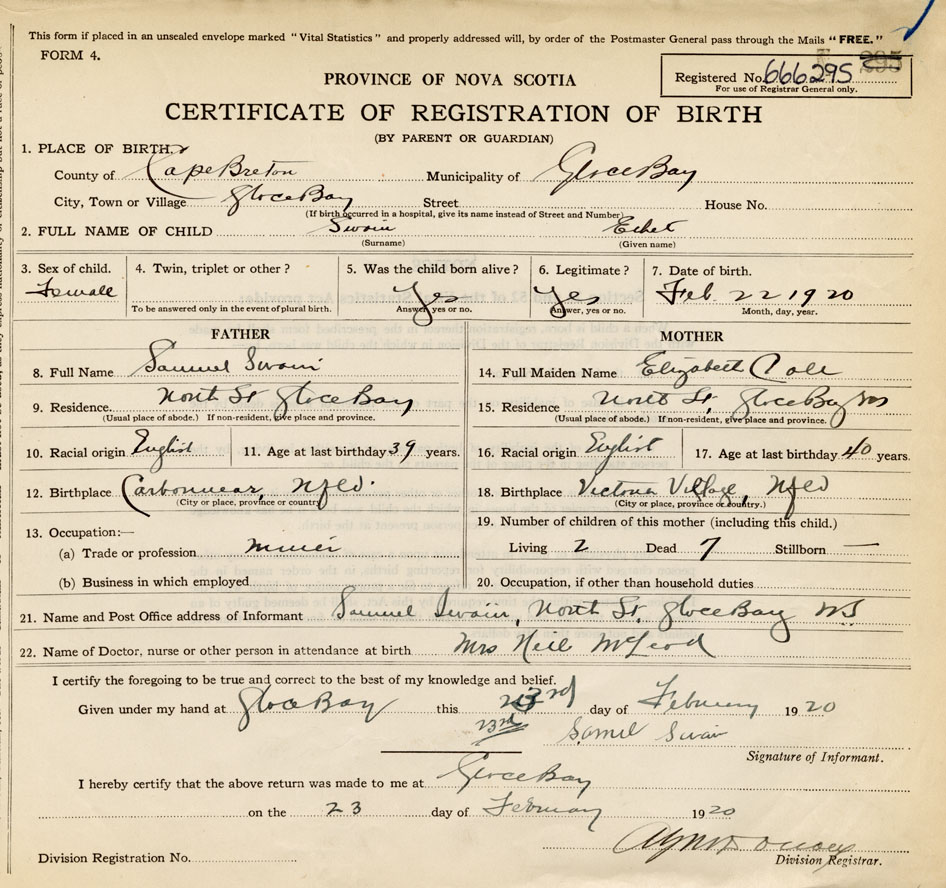 This form if placed in an unsealed envelope marked "Vital Statistics" and properly addressed will, by order of the Postmaster General pass through the Mails "FREE."
FORM 4.
PROVINCE OF NOVA SCOTIA
Registered No. 666295 295
For use of Registrar General only.
CERTIFICATE OF REGISTRATION OF BIRTH
(BY PARENT OR GUARDIAN)
1. PLACE OF BIRTH.
County of Cape Breton Municipality of Glace Bay
City, Town or Village Glace Bay Street House No.
(If birth occurred in a hospital, give its name instead of Street and Number)
2. FULL NAME OF CHILD Swain Ethel
(Surname) (Given name)
3. Sex of child. 4. Twin, triplet or other? 5. Was the child born alive? 6. Legitimate? 7. Date of birth.
Female Yes Yes Feb 22 1920
To be answered only in the event of plural birth. Answer, yes or no. Answer, yes or no. Month, day, year.
FATHER MOTHER
8. Full Name Samuel Swain 14. Full Maiden Name Elizabeth Cole
9. Residence North St Glace Bay 15. Residence North St, Glace Bay NS
(Usual place of abode.) If non-resident, give place and province. (Usual place of abode.) If non-resident, give place and province.
10. Racial origin English 11. Age at last birthday 39 years. 16. Racial origin English 17. Age at last birthday 40 years.
12. Birthplace Carbonear, Nfld. 18. Birthplace Victoria Village, Nfld
(City or place, province or country) (City or place, province or country.)
13. Occupation:— 19. Number of children of this mother (including this child.)
(a) Trade or profession Miner Living 2 Dead 7 Stillborn —
(b) Business in which employed 20. Occupation, if other than household duties
21. Name and Post Office address of Informant Samuel Swain, North St, Glace Bay NS
22. Name of Doctor, nurse or other person in attendance at birth Mrs Neil McLeod
I certify the foregoing to be true and correct to the best of my knowledge and belief.
Given under my hand at Glace Bay this 23rd day of February 1920
23rd Saml Swain
Signature of Informant.
I hereby certify that the above return was made to me at Glace Bay
on the 23 day of February 1920
Division Registration No. Division Registrar.